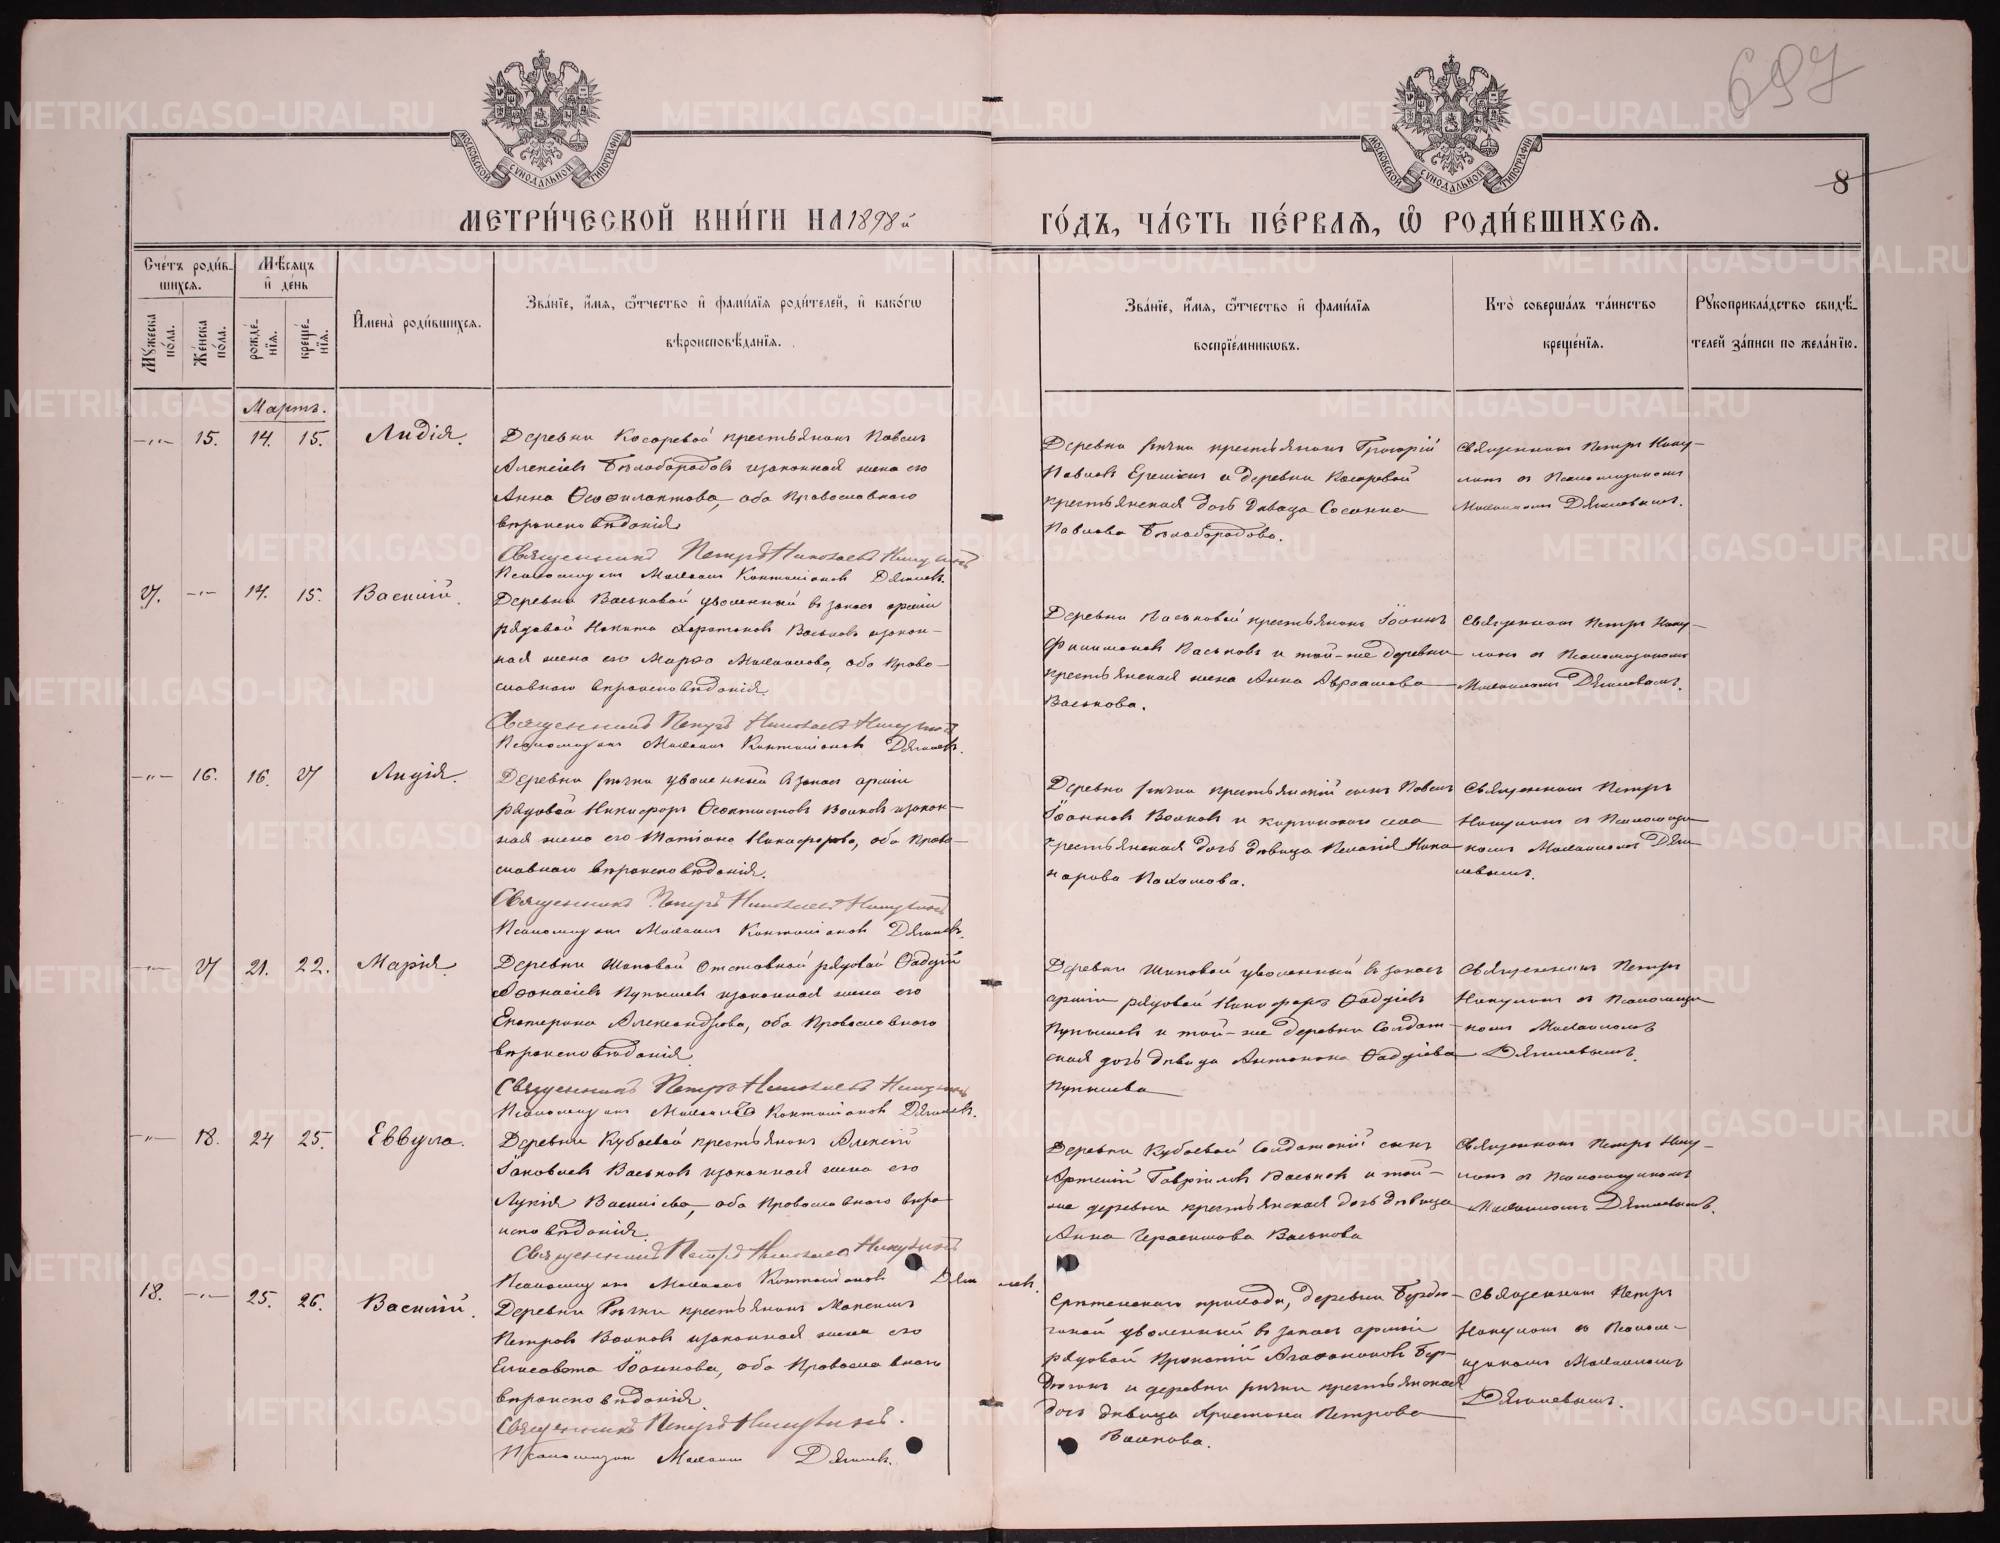 697
8
МОСКОВСКОЙ СУНОДАЛЬНОЙ ТИПОГРАФІИ
МОСКОВСКОЙ СУНОДАЛЬНОЙ ТИПОГРАФІИ
МЕТРИ́ЧЕСКОЙ КНИ́ГИ НА 1898й
ГО́ДЪ, ЧА́СТЬ ПЕ́РВАЯ, Ѡ РОДИ́ВШИХСЯ.
Сче́тъ роди́в-
шихся.
Мѣ́сяцъ
и де́нь
Му́жеска по́ла.
Же́нска по́ла.
рожде́нїя.
креще́нїя.
Имена̀ роди́вшихся.
Зва́нїе, и́мя, о́тчество и фами́лїя роди́телей, и како́гѡ
вѣроисповѣ́данїя.
Зва́нїе, и́мя, о́тчество и фами́лїя
воспрїе́мникѡвъ.
Кто̀ соверша́лъ та́инство
креще́нїя.
Рꙋкоприкла́дство свидѣ́-
телей за́писи по жела́нїю.
Мартъ.
15. 14. 15. Лидія.
Деревни Косоревой крестьянинъ Павелъ
Алексіевъ Бѣлобородовъ и законная жена его
Анна Ѳеофилактова, оба Православнаго
вѣроисповѣданія.
Священникъ Петръ Николаевъ Никулинъ
Псаломщикъ Дягилевъ.
Деревни крестьянинъ Григорій
Павловъ и деревни Косоревой
крестьянская дочь дѣвица
Павлова Бѣлобородова.
Священникъ Петръ Нику-
линъ съ Псаломщикомъ
Дягилевымъ.
17. 14. 15. Василій.
Деревни Васьковой уволенный въ запасъ арміи
рядовой Никита Харитоновъ Васьковъ и закон-
ная жена его Марѳа оба Право-
славнаго вѣроисповѣданія.
Священникъ Петръ Николаевъ Никулинъ
Псаломщикъ Дягилевъ.
Деревни Васьковой крестьянинъ Іоаннъ
Филимоновъ Васьковъ и той-же деревни
крестьянская жена Анна Авраамова
Васькова.
Священникъ Петръ Нику-
линъ съ Псаломщикомъ
Дягилевымъ.
16. 16. 17 Лидія.
Деревни Рѣчки уволенный въ запасъ арміи
рядовой Никифоръ Ѳеоктистовъ Волковъ и закон-
ная жена его Татіана Никифорова, оба Право-
славнаго вѣроисповѣданія.
Священникъ Петръ Николаевъ Никулинъ
Псаломщикъ Дягилевъ.
Деревни Рѣчки крестьянскій сынъ Павелъ
Іоанновъ Волковъ и села
крестьянская дочь дѣвица Пелагія Ника-
норова Пахомова.
Священникъ Петръ
Никулинъ съ Псаломщи-
комъ Дяги-
левымъ.
17 21. 22. Марія.
Деревни Шиповой отставной рядовой Ѳаддей
Аѳонасіевъ Пупышевъ и законная жена его
Екатерина Александрова, оба Православнаго
вѣроисповѣданія.
Священникъ Петръ Николаевъ Никулинъ
Псаломщикъ Дягилевъ.
Деревни Шиповой уволенный въ запасъ
арміи рядовой Никифоръ Ѳаддіевъ
Пупышевъ и той-же деревни Солдат-
ская дочь дѣвица Антонина Ѳаддіева
Пупышева
Священникъ Петръ
Никулинъ съ Псаломщи-
комъ
Дягилевымъ.
18. 24 25. Еввула.
Деревни Кубаевой крестьянинъ Алексій
Іаковлевъ Васьковъ и законная жена его
Лукія Васильева, оба Православнаго вѣро-
исповѣданія.
Священникъ Петръ Николаевъ Никулинъ
Псаломщикъ Дягилевъ.
Деревни Кубаевой Солдатскій сынъ
Артемій Гавріиловъ Васьковъ и той-
же деревни крестьянская дочь дѣвица
Анна Герасимова Васькова
Священникъ Петръ Нику-
линъ съ Псаломщикомъ
Дягилевымъ.
18. 25. 26. Василій.
Деревни Рѣчки крестьянинъ Максимъ
Петровъ Волковъ и законная жена его
Елисавета Іоаннова, оба Православнаго
вѣроисповѣданія.
Священникъ Петръ Никулинъ.
Псаломщикъ Дягилевъ.
прихода, деревни
уволенный въ запасъ арміи
рядовой Прокопій
и деревни Рѣчки крестьянская
дочь дѣвица Христина Петрова
Волкова.
Священникъ Петръ
Никулинъ съ Псалом-
щикомъ
Дягилевымъ.